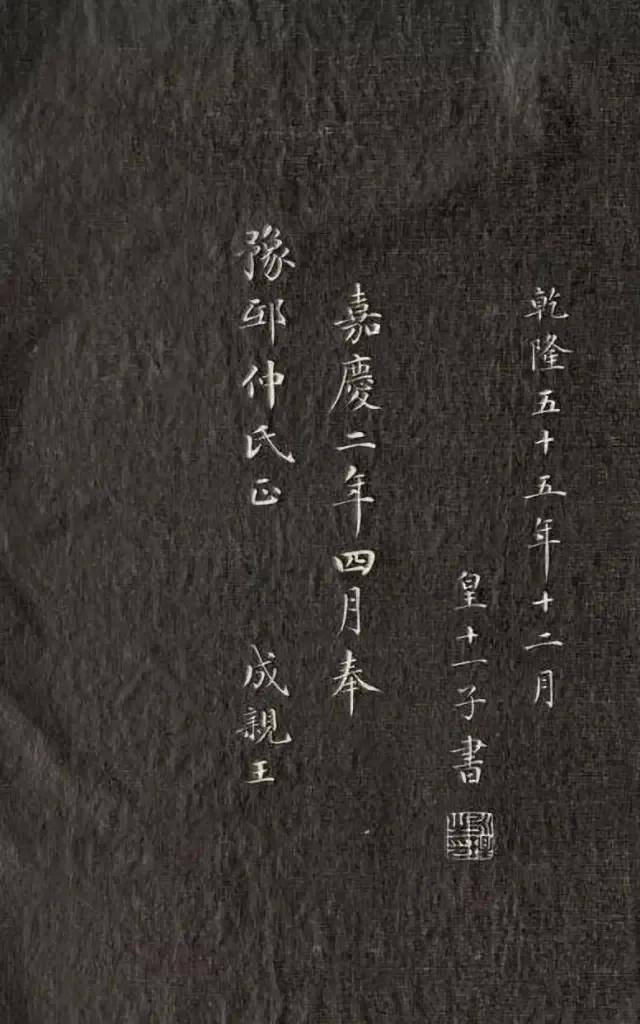 乾隆五十五年十二月
皇十一子書
嘉慶二年四月奉
豫邨仲氏正 成親王